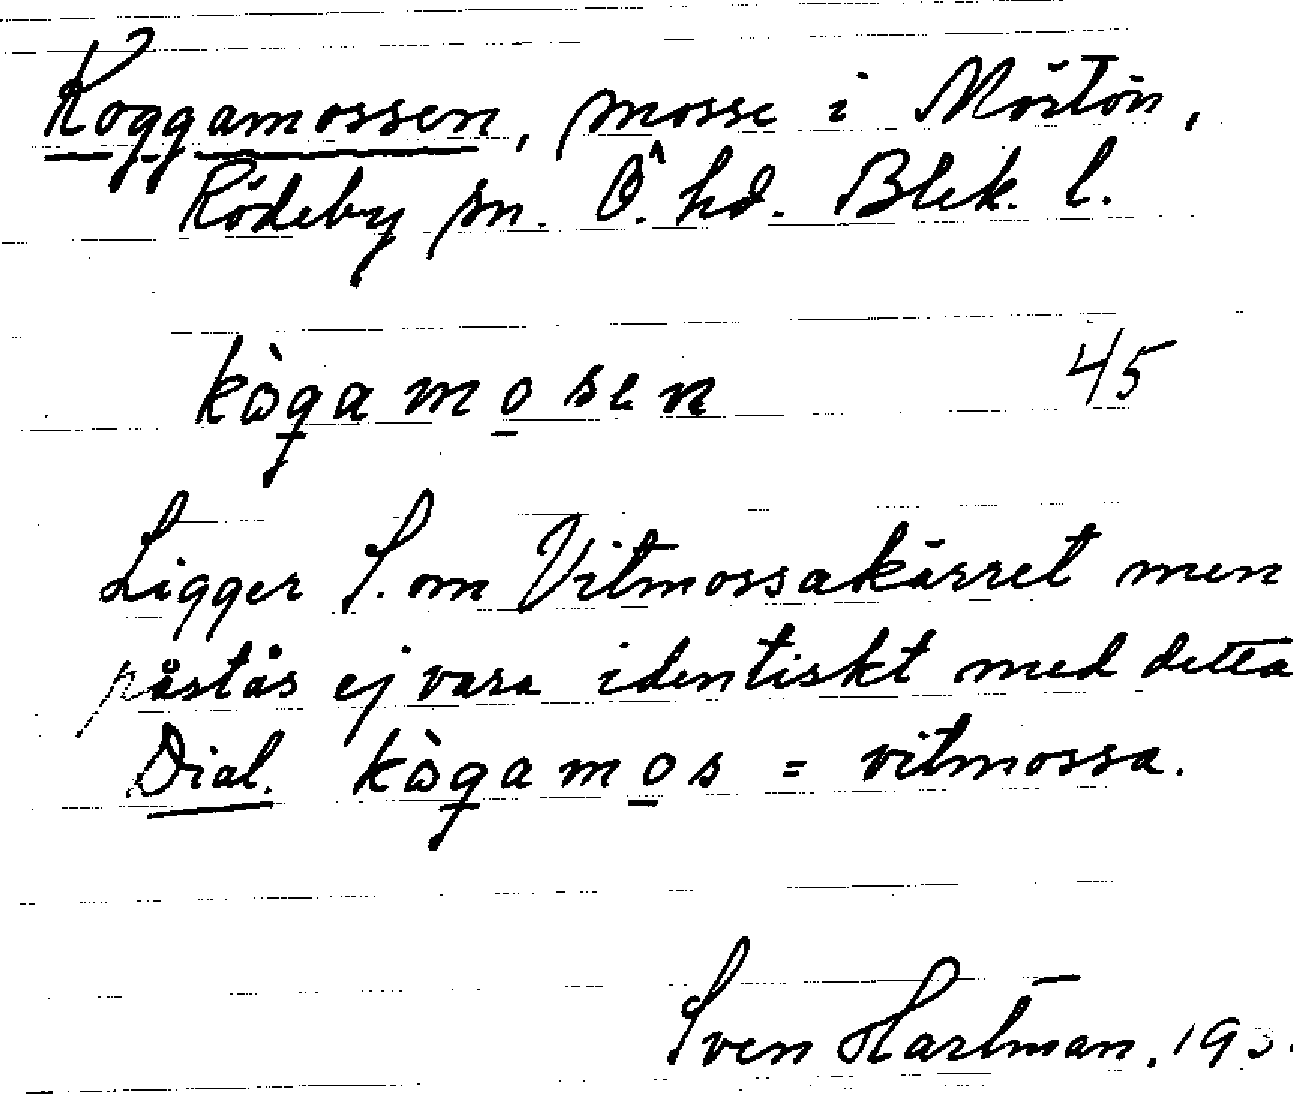 Koggamossen, mosse i Mörtön,
Rödeby sn. Ö. hd. Blek. l.
kògamosen 45
Ligger S. om Vitmossakärret men
påstås ej vara identiskt med detta
Dial. kògamos = vitmossa.
Sven Hartman. 193